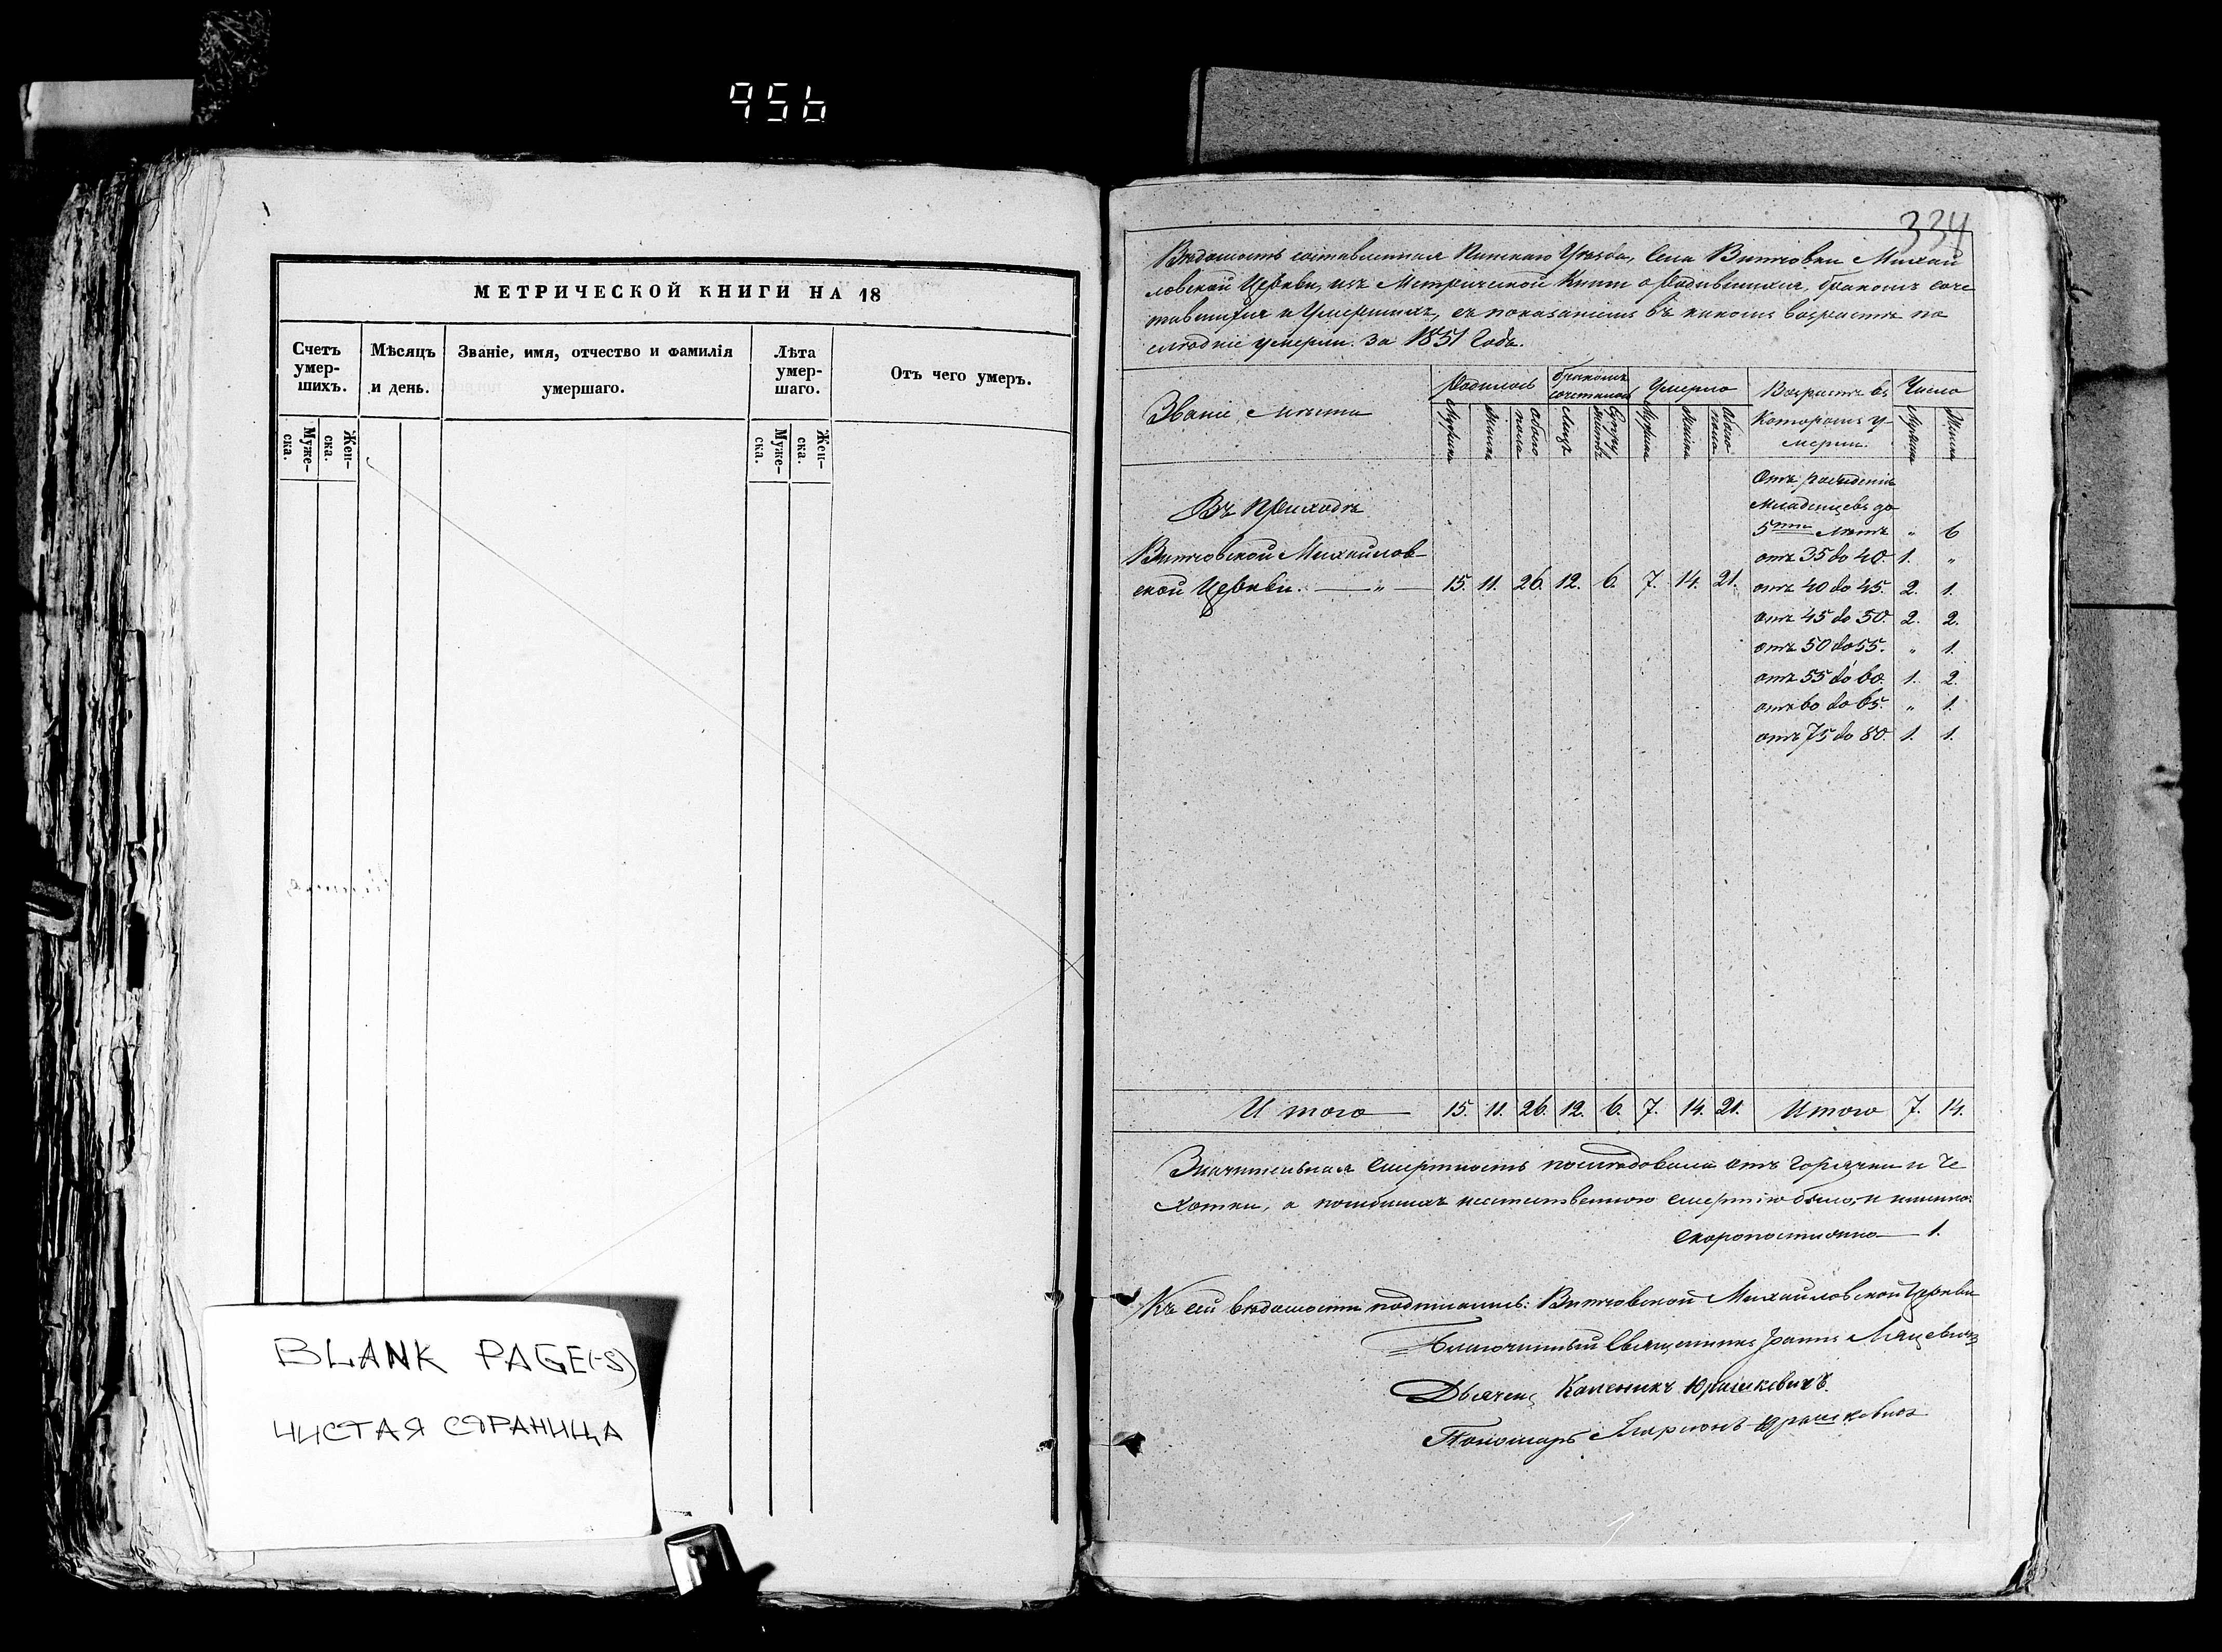 956
МЕТРИЧЕСКОЙ КНИГИ НА 18
Счетъ умер-шихъ.
Мѣсяцъ и день.
Званіе, имя, отчество и фамилія умершаго.
Лѣта умер-шаго.
Отъ чего умеръ.
Муже-ска.
Жен-ска.
Муже-ска.
Жен-ска.
BLANK PAGE(-S)
ЧИСТАЯ СТРАНИЦА
334
Вѣдомость составленная Пинскаго Уѣзда, Села Витчовки Михай
ловской Церкви, изъ Метрической Книги о Родившихся, бракомъ соче
тавшихся и Умершихъ, съ показаніемъ въ какомъ возрастѣ по
слѣдніе умерли. За 1851 Годъ.
Званіе мѣста
Родилось
бракомъ сочеталось
Умерло
Возрастъ въ
Которомъ у-
мерли.
Число
Мужска
Женска
Обоего пола
Лицъ
Супружествъ
Мужска
Женска
Обоего пола
Мужска
Женска
Отъ рожденія
Младенцевъ до
5ти лѣтъ " 6
отъ 35 до 40. 1. "
отъ 40 до 45. 2. 1.
отъ 45 до 50. 2. 2.
отъ 50 до 55. " 1.
отъ 55 до 60. 1. 2.
отъ 60 до 65. " 1.
отъ 75 до 80. 1. 1.
Въ Приходѣ
Витчовской Михайлов-
ской Церкви. — " — 15. 11. 26. 12. 6. 7. 14. 21.
Итого 15. 11. 26. 12. 6. 7. 14. 21. Итого 7. 14.
Значительная Смертность послѣдовала отъ Горячки и Че
хотки, а погибшихъ неестественною смертію было, и именно:
Скоропостижно — 1.
Къ сей вѣдомости подписались: Витчовской Михайловской Церкви
Благочинный Священникъ Іоаннъ Ляцевичъ
Дьячекъ Каленикъ Юрашкевичъ.
Пономарь Юрашкевичъ